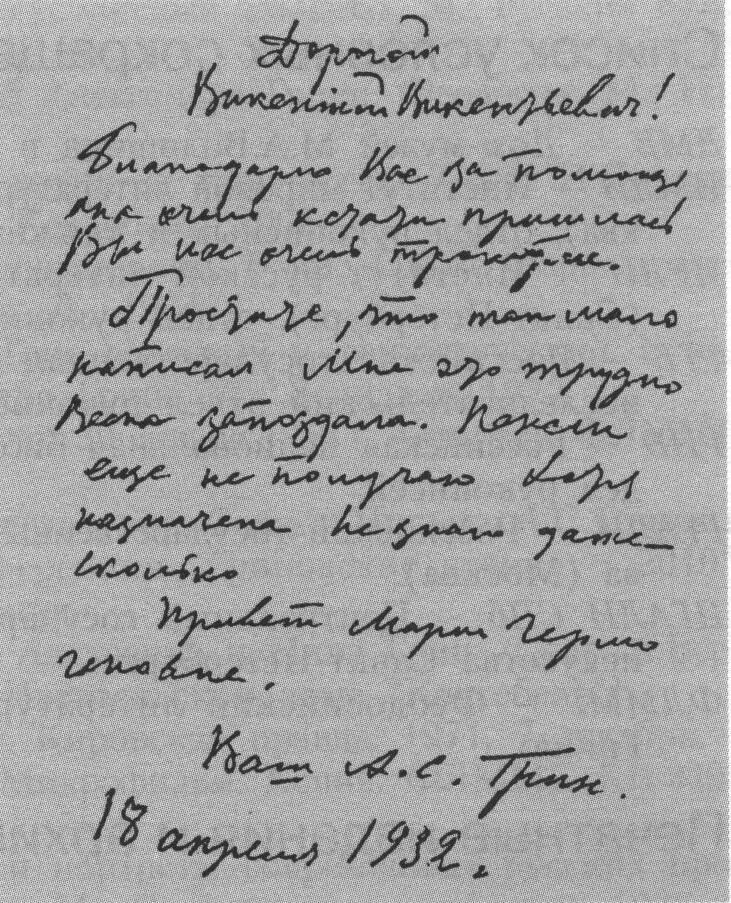 Дорогой
Викентий Викентьевич!
Благодарю Вас за помощь
она очень кстати пришлась
Вы нас очень тронули.
Простите, что так мало
написал Мне это трудно
Весна запоздала. Пенсии
еще не получаю хотя
назначена Не знаю даже
сколько
Привет Марии Гермо
геновне.
Ваш А.С. Грин.
18 апреля 1932.